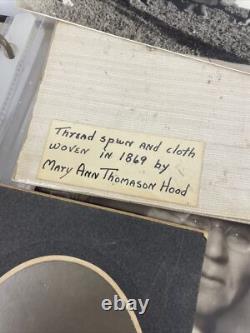 Thread spun and cloth
woven in 1869 by
Mary Ann Thomason Hood